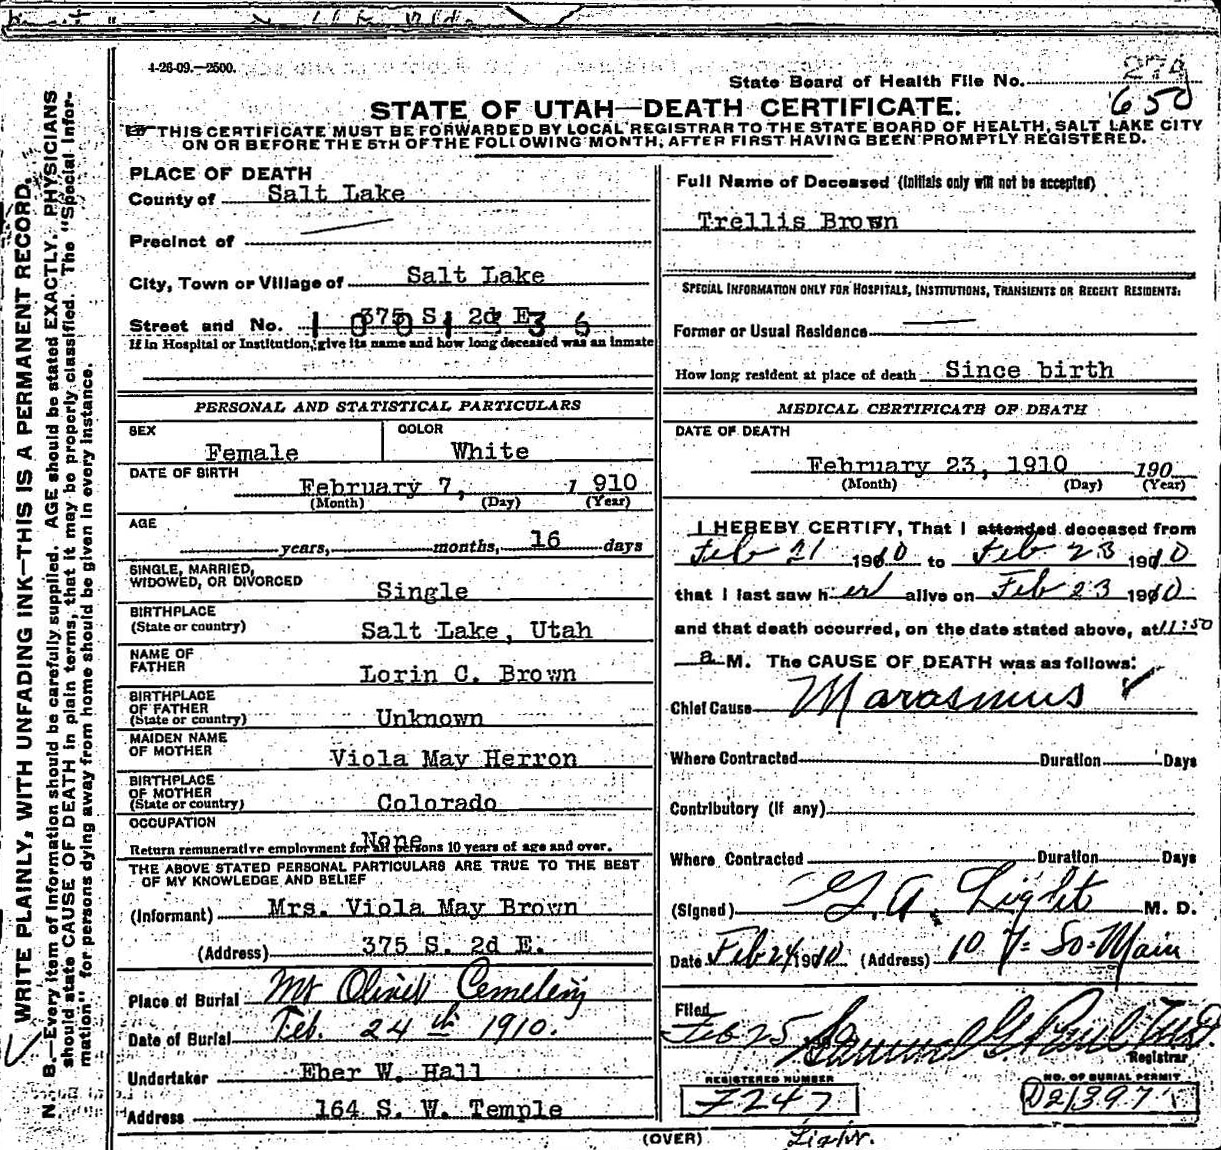 4-26-09.—2500.
State Board of Health File No. 279
650
STATE OF UTAH—DEATH CERTIFICATE.
THIS CERTIFICATE MUST BE FORWARDED BY LOCAL REGISTRAR TO THE STATE BOARD OF HEALTH, SALT LAKE CITY
ON OR BEFORE THE 5TH OF THE FOLLOWING MONTH, AFTER FIRST HAVING BEEN PROMPTLY REGISTERED.
WRITE PLAINLY, WITH UNFADING INK—THIS IS A PERMANENT RECORD.
N. B.—Every item of information should be carefully supplied. AGE should be stated EXACTLY. PHYSICIANS
should state CAUSE OF DEATH in plain terms, that it may be properly classified. The "Special Infor-
mation" for persons dying away from home should be given in every instance.
PLACE OF DEATH
County of Salt Lake
Precinct of
City, Town or Village of Salt Lake
Street and No. 375 S. 2d E.
1001336
If in Hospital or Institution, give its name and how long deceased was an inmate
PERSONAL AND STATISTICAL PARTICULARS
SEX Female COLOR White
DATE OF BIRTH
February 7, 1910
(Month) (Day) (Year)
AGE
years, months, 16 days
SINGLE, MARRIED,
WIDOWED, OR DIVORCED Single
BIRTHPLACE
(State or country) Salt Lake, Utah
NAME OF
FATHER Lorin C. Brown
BIRTHPLACE
OF FATHER
(State or country) Unknown
MAIDEN NAME
OF MOTHER Viola May Herron
BIRTHPLACE
OF MOTHER
(State or country) Colorado
OCCUPATION
None
Return remunerative employment for all persons 10 years of age and over.
THE ABOVE STATED PERSONAL PARTICULARS ARE TRUE TO THE BEST
OF MY KNOWLEDGE AND BELIEF
(Informant) Mrs. Viola May Brown
(Address) 375 S. 2d E.
Place of Burial Mt Olivet Cemetery
Date of Burial Feb. 24th 1910.
Undertaker Eber W. Hall
Address 164 S. W. Temple
Full Name of Deceased (Initials only will not be accepted)
Trellis Brown
SPECIAL INFORMATION ONLY FOR HOSPITALS, INSTITUTIONS, TRANSIENTS OR RECENT RESIDENTS:
Former or Usual Residence
How long resident at place of death Since birth
MEDICAL CERTIFICATE OF DEATH
DATE OF DEATH
February 23, 1910 190
(Month) (Day) (Year)
I HEREBY CERTIFY, That I attended deceased from
Feb 21 1910 to Feb 23 1910
that I last saw her alive on Feb 23 1910
and that death occurred, on the date stated above, at 11:50
a M. The CAUSE OF DEATH was as follows:
Chief Cause Marasmus
Where Contracted Duration Days
Contributory (If any)
Where Contracted Duration Days
(Signed) G. A. Light M. D.
Date Feb 24 1910 (Address) 107 So Main
Filed
Feb 25 Samuel G Paul M.D.
Registrar
REGISTERED NUMBER
F247
NO. OF BURIAL PERMIT
D21397
(OVER) Light.